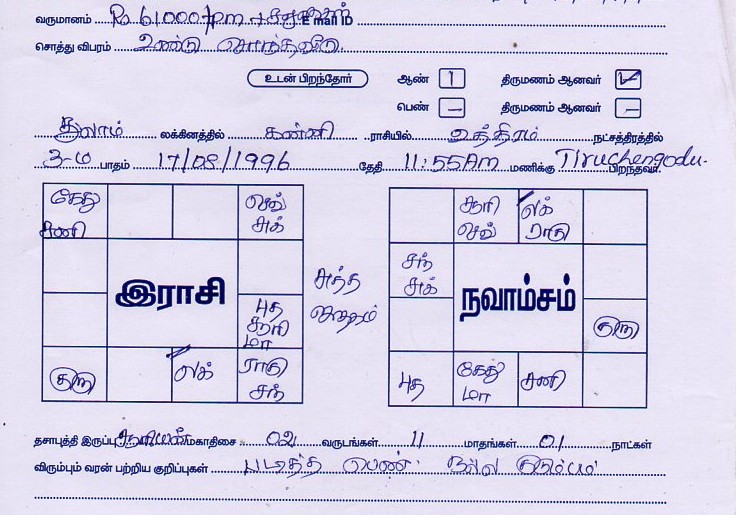 வருமானம் Rs 61000/pm + E mail ID
சொத்து விபரம் உண்டு சொந்தவீடு
உடன் பிறந்தோர் ஆண் 1 திருமணம் ஆனவர் ✓
பெண் – திருமணம் ஆனவர் –
துலாம் லக்கினத்தில் கன்னி ராசியில் உத்திரம் நட்சத்திரத்தில்
3-ம் பாதம் 17/08/1996 தேதி 11:55Am மணிக்கு Tiruchengodu. பிறந்தவர்
கேது சனி
செவ் சுக்
புத சூரி மா
குரு
லக்
ராகு சந்
இராசி
சூரி செவ்
லக் ராகு
சந் சுக்
குரு
புத
கேது மா
சனி
நவாம்சம்
தசாபுத்தி இருப்பு சூரியன் மகாதிசை 02 வருடங்கள் 11 மாதங்கள் 01 நாட்கள்
விரும்பும் வரன் பற்றிய குறிப்புகள் படித்த பெண். நல்ல குடும்பம்